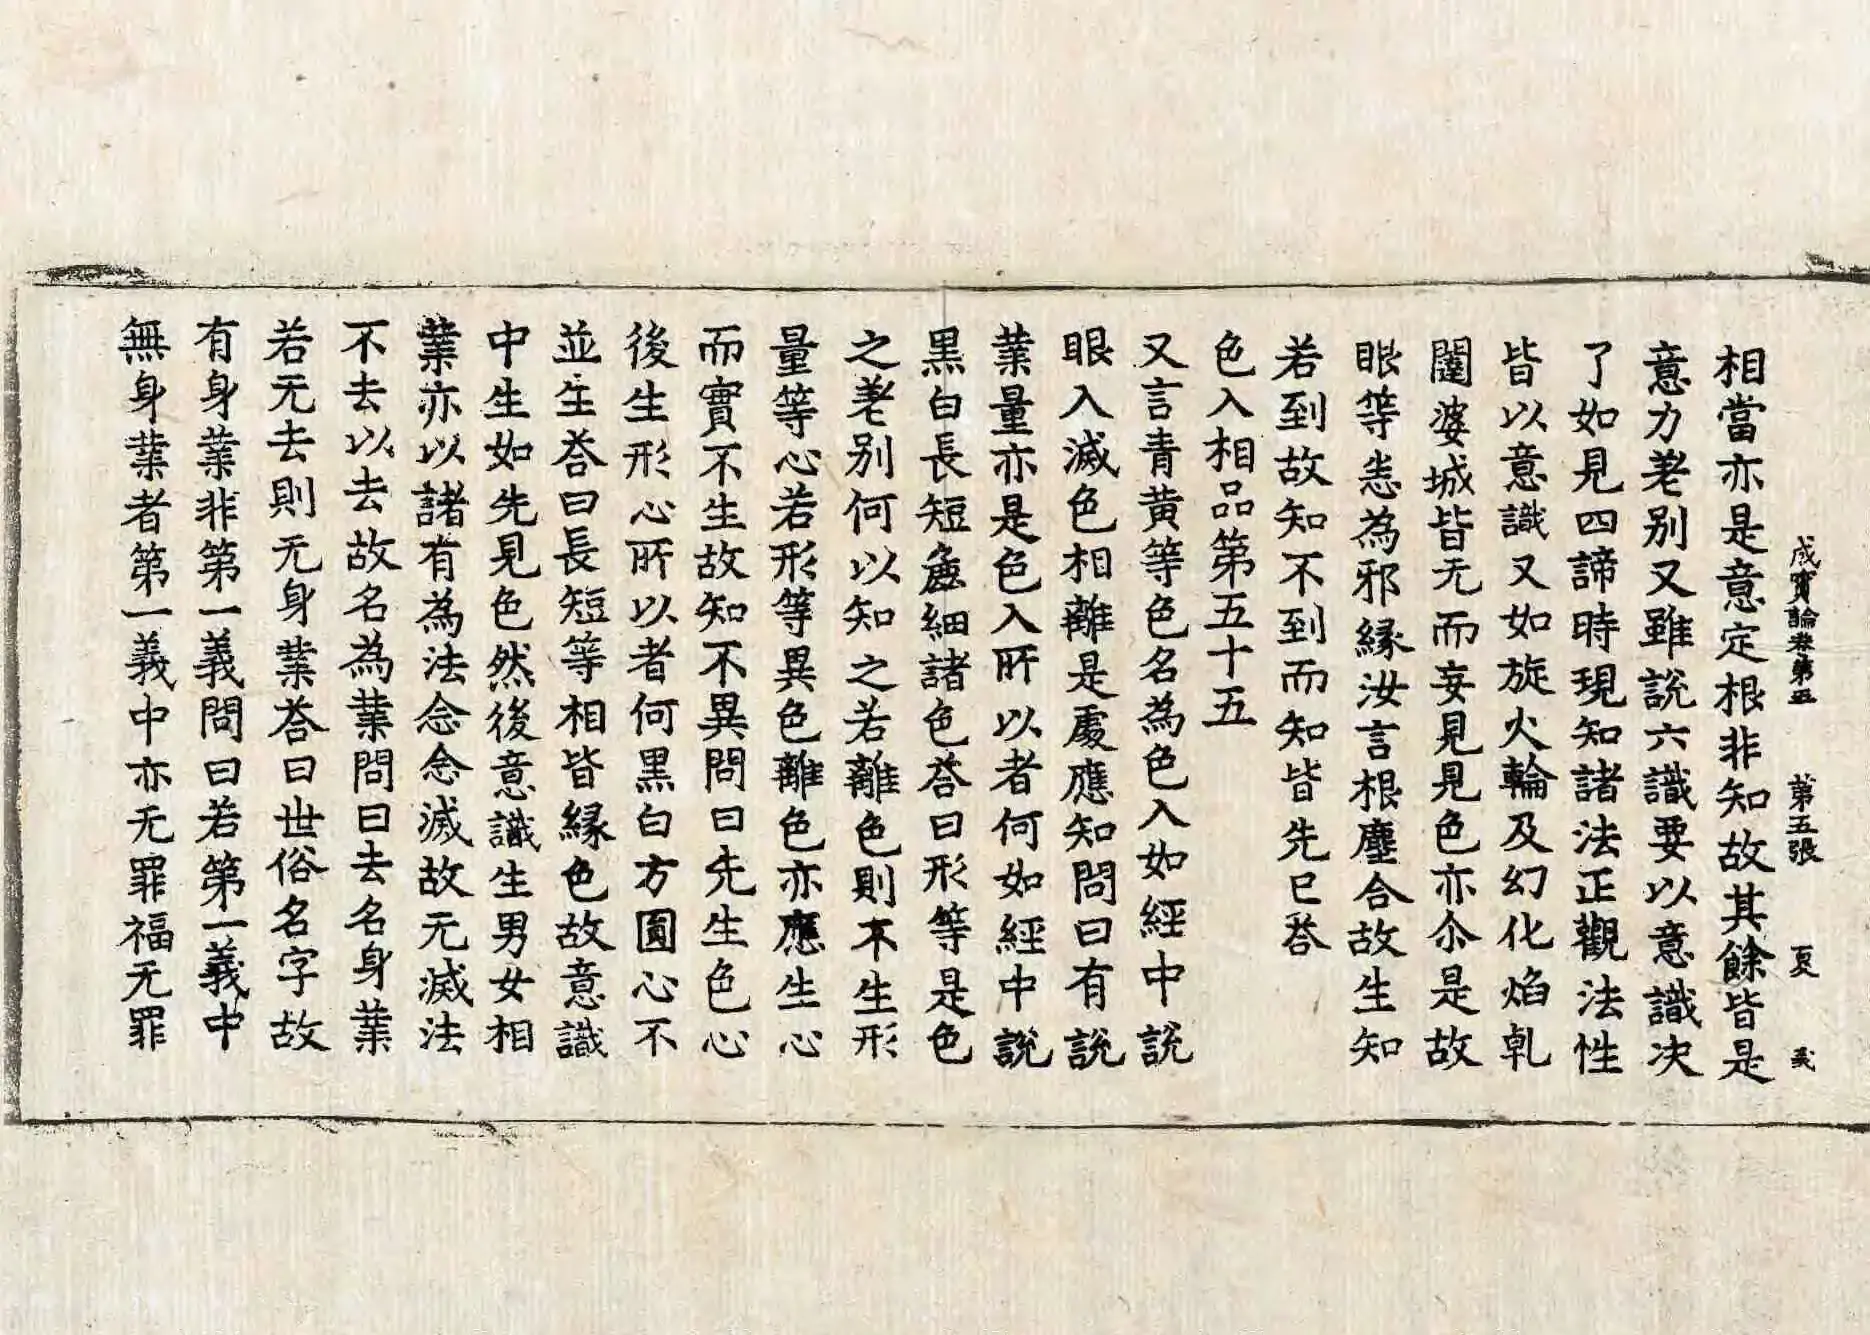 成實論卷第五 第五張 夏 義
相當亦是意定根非知故其餘皆是
意力差别又雖說六識要以意識决
了如見四諦時現知諸法正觀法性
皆以意識又如旋火輪及幻化焰乹
闥婆城皆无而妄見見色亦尒是故
眼等恚為邪緣汝言根塵合故生知
若到故知不到而知皆先已荅
色入相品第五十五
又言青黄等色名為色入如經中說
眼入滅色相離是處應知問曰有說
業量亦是色入所以者何如經中說
黑白長短麁細諸色荅曰形等是色
之差别何以知之若離色則不生形
量等心若形等異色離色亦應生心
而實不生故知不異問曰先生色心
後生形心所以者何黑白方圓心不
並生荅曰長短等相皆緣色故意識
中生如先見色然後意識生男女相
業亦以諸有為法念念滅故无滅法
不去以去故名為業問曰去名身業
若无去則无身業荅曰世俗名字故
有身業非第一義問曰若第一義中
無身業者第一義中亦无罪福无罪